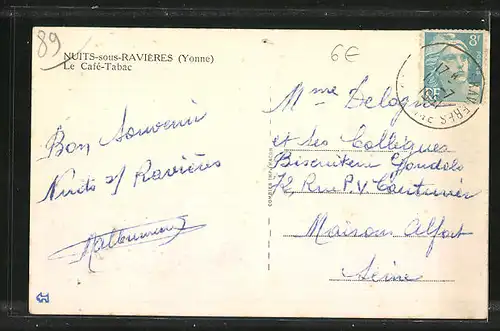 89
NUITS-sous-RAVIÈRES (Yonne)
Le Café-Tabac
6€
8F
RF
Bon Souvenir
Nuits s/ Ravières
Mme
et ses Collègues
Biscuiterie Gondolo
72, Rue P.V. Couturier
Maisons Alfort
Seine